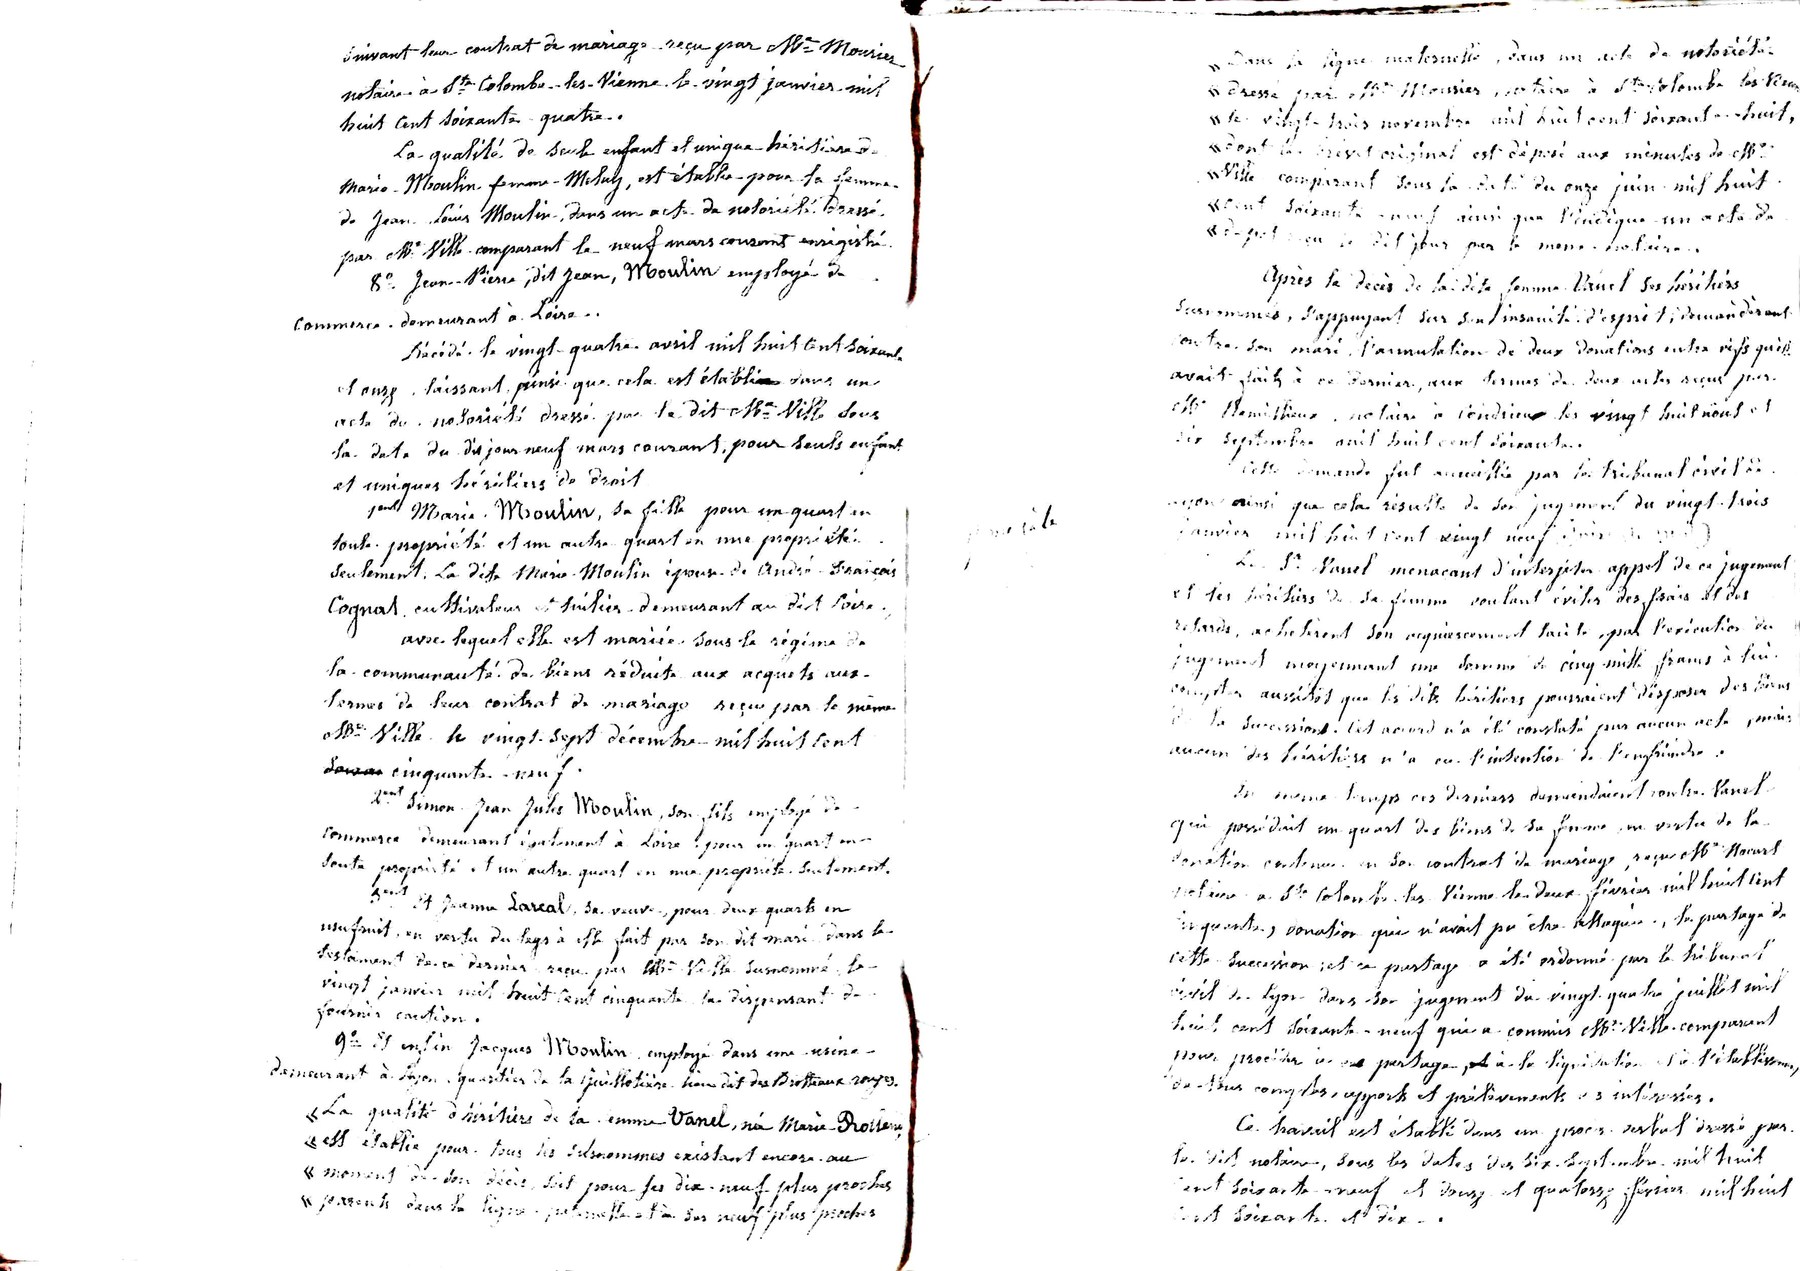 suivant leur contrat de mariage reçu par Me Mousier
notaire à Ste Colombe-les-Vienne le vingt janvier mil
huit cent soixante quatre.
La qualité de seule enfant et unique héritière de
Marie Moulin femme Meluy, est établie pour la femme
de Jean Louis Moulin, dans un acte de notoriété dressé
par Me Ville comparant le neuf mars courant enregistré
8e Jean-Pierre, dit Jean, Moulin employé de
commerce demeurant à Loire.
Décédé le vingt-quatre avril mil huit cent soixante
et onze, laissant, ainsi que cela est établi dans un
acte de notoriété dressé par le dit Me Ville sous
la date du dit jour neuf mars courant, pour seuls enfants
et uniques héritiers de droit
1ent Marie Moulin, sa fille pour un quart en
toute propriété et un autre quart en nue propriété
seulement. La dite Marie Moulin épouse de André François
Cognat, cultivateur et huilier demeurant au dit Loire,
avec lequel elle est mariée sous le régime de
la communauté de biens réduite aux acquets aux
termes de leur contrat de mariage reçu par le même
Me Ville le vingt-sept décembre mil huit cent
cinquante-neuf.
2ent Simon Jean Jules Moulin, son fils employé de
commerce demeurant également à Loire pour un quart en
toute propriété et un autre quart en nue propriété seulement.
3ent Et Jeanne Lareal, sa veuve, pour deux quarts en
usufruit, en vertu du legs à elle fait par son dit mari dans le
testament de ce dernier reçu par Me Ville susnommé le
vingt janvier mil huit cent cinquante la dispensant de
fournir caution.
9e Et enfin Jacques Moulin employé dans une usine
demeurant à Lyon, quartier de la Guillotière lieu dit des Brotteaux rouges.
« La qualité d'héritiers de la femme Vanel, née Marie
« est établie pour tous les susnommés existant encore au
« moment de son décès, soit pour ses dix-neuf plus proches
« parents dans la ligne paternelle et à ses neuf plus proches
« Dans la ligne maternelle, dans un acte de notoriété
« dressé par Me Mousier, notaire à Ste Colombe les Vienne
« le vingt-trois novembre mil huit cent soixante-huit,
« dont le brevet original est déposé aux minutes de Me
« Ville comparant sous la date du onze juin mil huit
« cent soixante-neuf ainsi que l'indique un acte de
« dépot reçu le dit jour par le meme notaire.
Après le décès de la dite femme Vanel ses héritiers
surnommés, s'appuyant sur son insanité d'esprit, demandèrent
contre son mari l'annulation de deux donations entre vifs qu'elle
avait faits à ce dernier, aux termes de deux actes reçus par
Me Remillieux, notaire à Condrieu les vingt huit août et
dix septembre mil huit cent soixante.
Cette demande fut accueillie par le tribunal civil de
Lyon ainsi que cela résulte de son jugement du vingt-trois
janvier mil huit cent vingt neuf
Le Sr Vanel menaçant d'interjeter appel de ce jugement
et les héritiers de sa femme voulant éviter des frais et des
retards, achetèrent son acquiescement tacite, par l'exécution du
jugement moyennant une somme de cinq mille francs à lui
compter aussitôt que les dits héritiers pourraient disposer des biens
de la succession. Cet accord n'a été constaté par aucun acte, mais
aucun des héritiers n'a eu l'intention de l'enfreindre.
En meme temps ces derniers demandaient contre Vanel
qui possédait un quart des biens de sa femme en vertu de la
donation contenue en son contrat de mariage reçu Me
notaire à Ste Colombe les Vienne le deux février mil huit cent
cinquante, donation qui n'avait pu être attaquée, le partage de
cette succession et ce partage a été ordonné par le tribunal
civil de Lyon dans son jugement du vingt-quatre juillet mil
huit cent soixante-neuf qui a commis Me Ville comparant
pour procéder à ce partage, à la liquidation et à l'établissement
de tous comptes, rapports et prélèvements des intéressés.
Ce travail est établi dans un procès verbal dressé par
le dit notaire, sous les dates des six septembre mil huit
cent soixante-neuf et douze et quatorze février mil huit
cent soixante et dix.